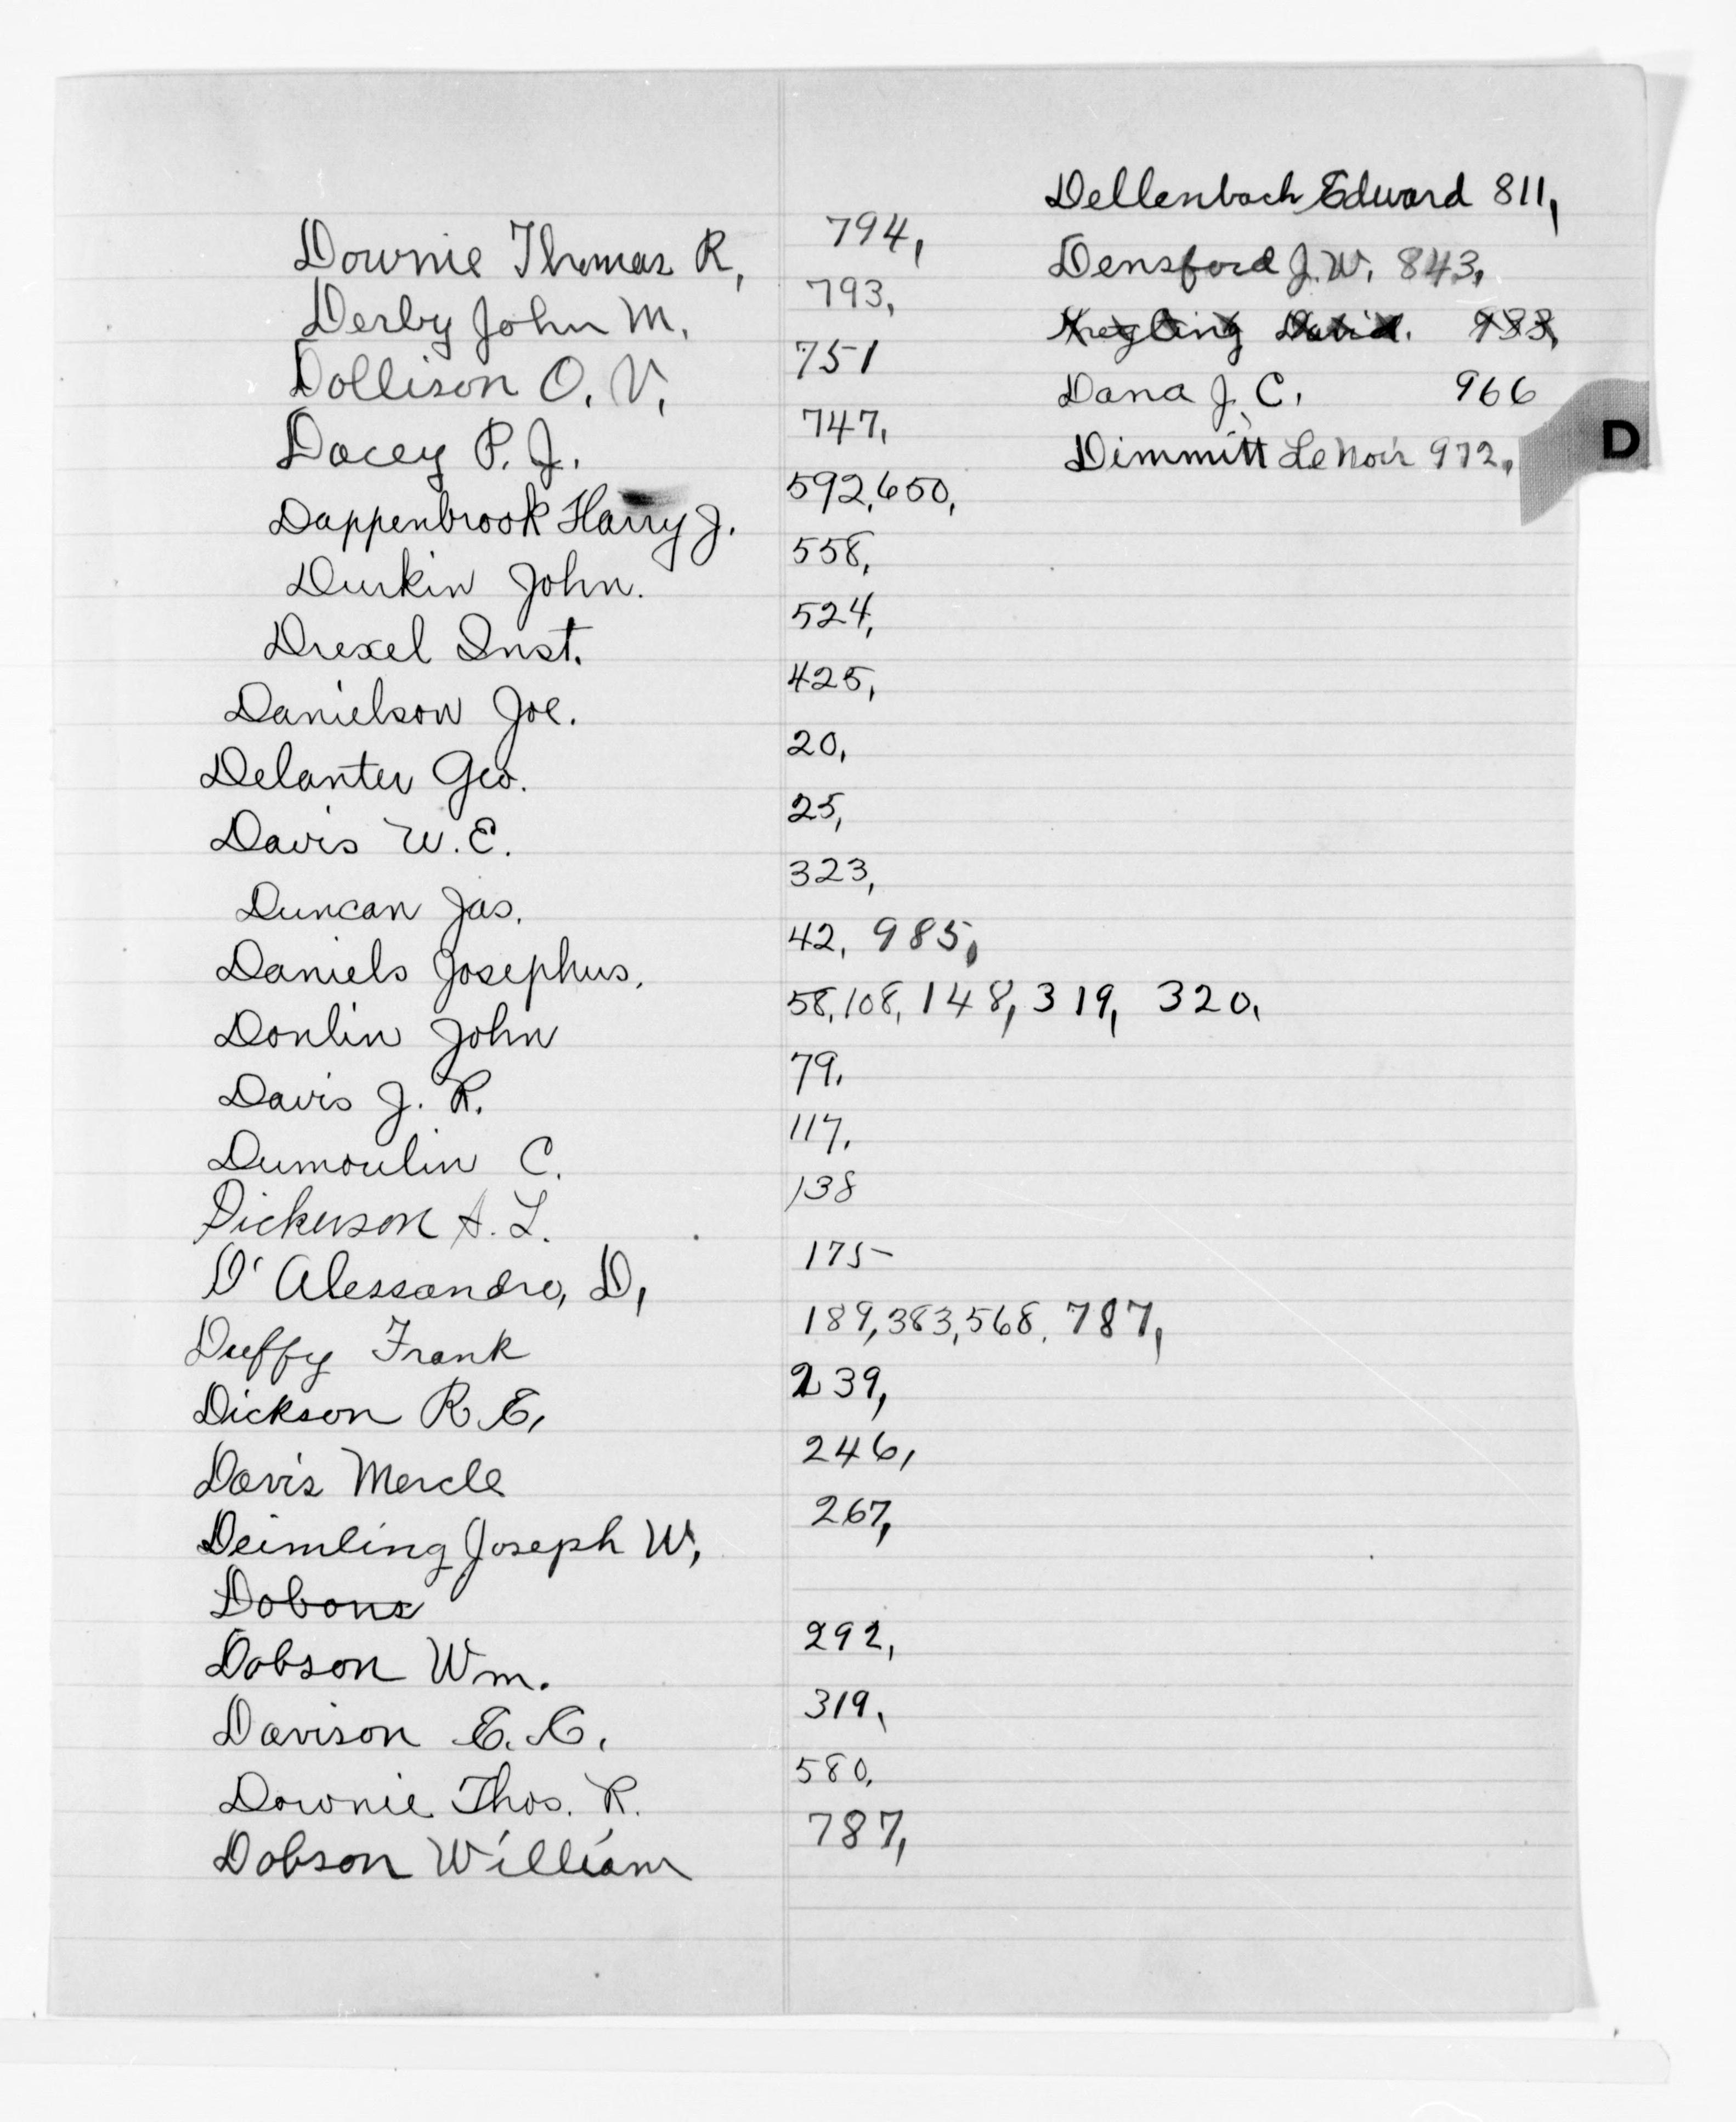 Downie Thomas R, 794,
Derby John M. 793,
Dollison O. V. 751
Dacey P. J. 747,
Dappenbrook Harry J. 592,650,
Durkin John. 558,
Drexel Inst. 524,
Danielson Joe. 425,
Delanter Geo. 20,
Davis W. E. 25,
Duncan Jas. 323,
Daniels Josephus. 42, 985,
Donlin John 58,108, 148, 319, 320,
Davis J. R. 79.
Dumoulin C. 117.
Dickerson A. L. 138
D'Alessandro, D, 175
Duffy Frank 189,383,568, 787,
Dickson R. E, 239,
Davis Mercle 246,
Deimling Joseph W, 267,
Dobons
Dobson Wm. 292,
Davison E. C. 319,
Downie Thos. R. 580,
Dobson William 787,
Dellenbach Edward 811,
Densford J. W. 843,
David. 933,
Dana J. C. 966
Dimmitt LeNoir 972,
D